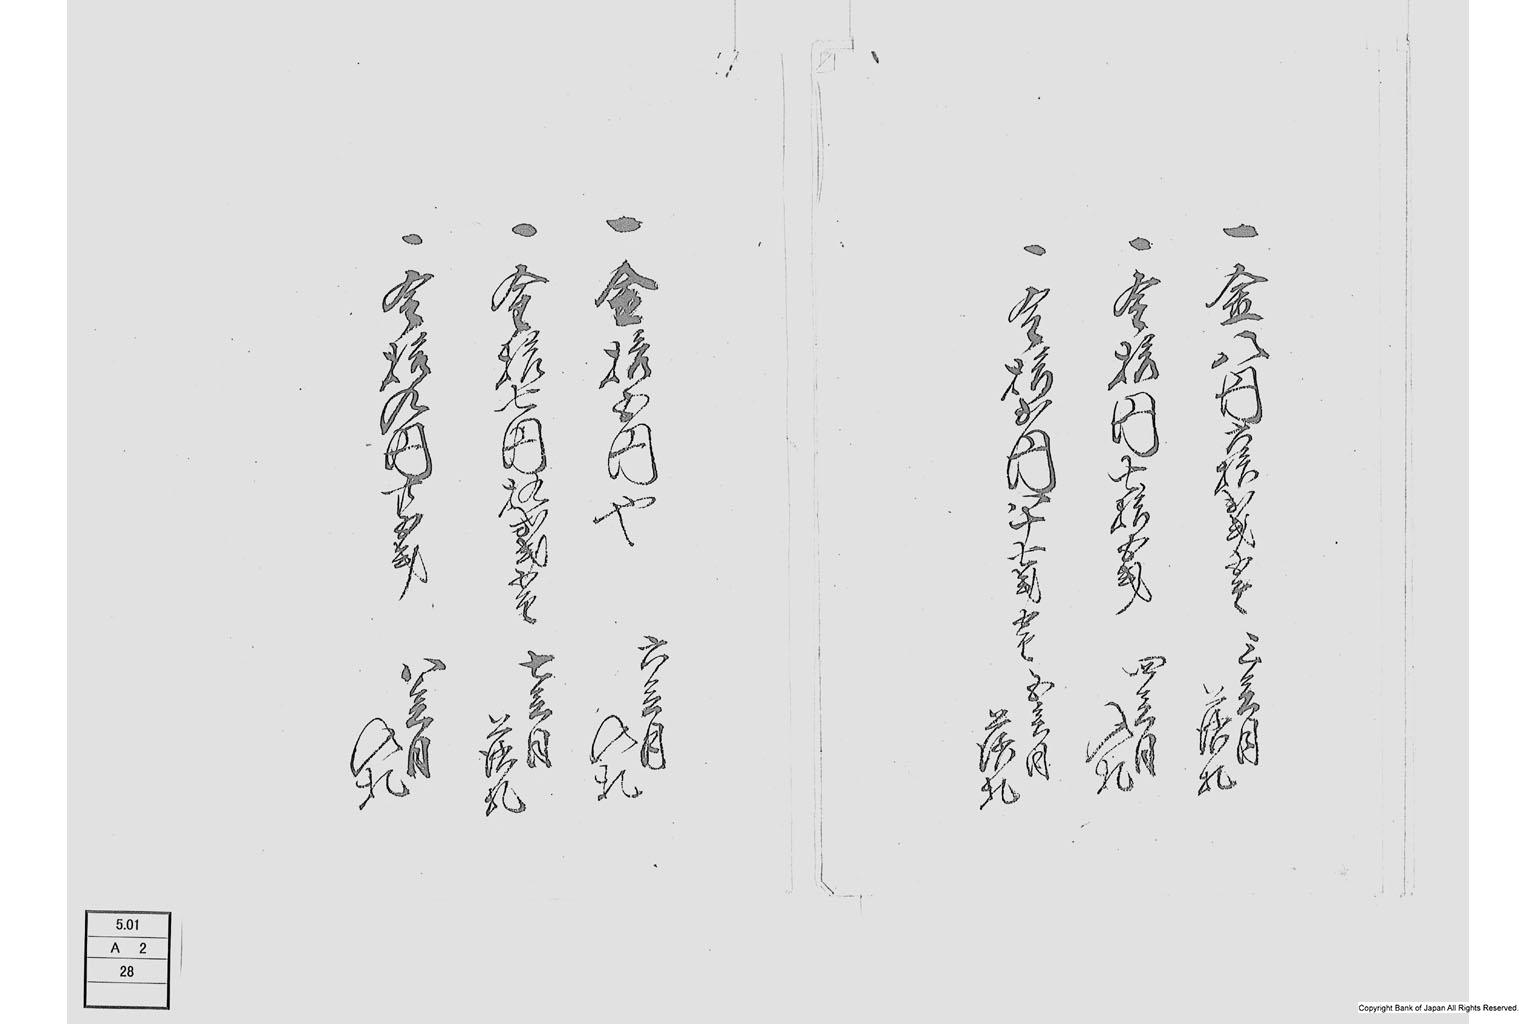 一金八円六拾弐銭五厘
三会月
落札
一金拾円七拾五銭
四会月
入札
一金拾弐円八十七銭五厘
五会月
落札
一金拾五円也
六会月
入札
一金拾七円拾弐銭五厘
七会月
落札
一金拾九円廿五銭
八会月
入札
5.01
A 2
28
Copyright Bank of Japan All Rights Reserved.